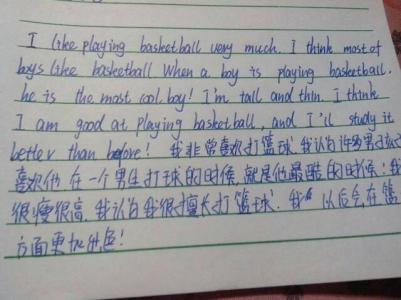 I like playing basketball very much. I think most of
boys like basketball When a boy is playing basketball.
he is the most cool boy! I'm tall and thin. I think
I am good at playing basketball, and I'll study it
better than before! 我非常喜欢打篮球.我认为许多男孩都
喜欢他 在一个男生打球的时候,就是他最酷的时候!我
很瘦很高.我认为我很擅长打篮球.我 以后会在篮
方面更加出色!